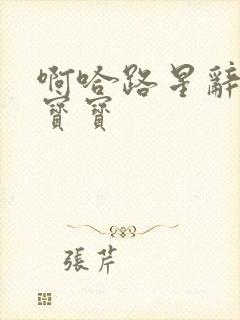 啊哈路星辭
寶寶
張芹